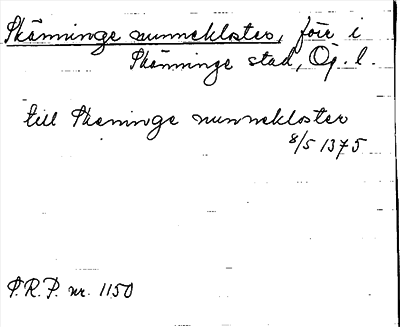 Skänninge nunnekloster, förr i
Skänninge stad, Ög. l.
till Skeninge nunnekloster
8/5 1375
P.R.P. nr. 1150